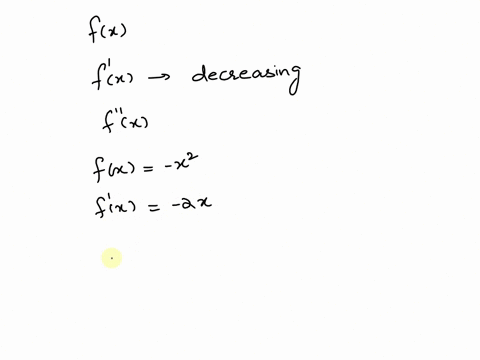 f(x)
f'(x) → decreasing
f''(x)
f(x) = -x²
f'(x) = -2x